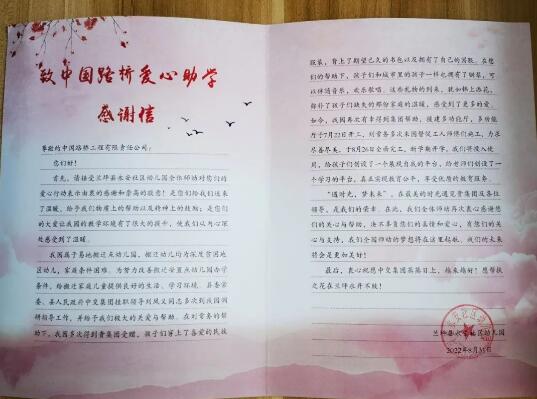 致中国路桥爱心助学
感谢信
尊敬的中国路桥工程有限责任公司：
您们好！
首先，请接受兰坪县永安社区幼儿园全体师幼对您们的
爱心行动表示由衷的感谢和崇高的敬意！是您们给我们送来
了温暖，给予我们物质上的帮助以及精神上的鼓励；是您们
的大爱让我园的教学环境有了很大的提升，使我们从内心深
处感受到了温暖。
我园属于易地搬迁点幼儿园，搬迁幼儿均为深度贫困地
区幼儿，家庭条件困难，为努力改善搬迁安置点幼儿园办学
条件，给予搬迁家庭儿童提供良好的生活、学习环境，县委常
委、县人民政府中交集团挂职领导刘同志多次到我园调
研指导工作，并给予我们极大的关爱与帮助。在对常委的帮
助下，我园多次得到贵集团受赠，孩子们穿上了喜爱的民族
服装，背上了期望已久的书包以及拥有了自己的园服，在您
们的帮助下，孩子们和城市里的孩子一样也拥有了钢琴，可
以伴随音乐，欢乐歌唱。这些礼物的到来，犹如锦上添花，
弥补了孩子们缺失的那份家庭的温暖，感受到了更多的爱。
如今，我园再次有幸得到集团帮助，援建多功能厅，多功能
厅于7月22日开工，刘常委多次来园督促工人师傅们施工，力求
尽善尽美，于8月26日全面完工，新学期开学，我们将投入使
用，给孩子们创设了一个展现自我的平台，给老师们创设了一
个学习的平台，真正实现教育公平，享受优质的教育服务。
“遇时光，梦未来”，在最美的时光遇见贵集团及各位
领导，是我们的荣幸。在此，我们全体师幼再次衷心感谢您
们的关心与帮助，决不辜负您们的真情和爱心，有您们的关
心与支持，我们全园师幼的梦想将在这里起航，我们的未来
将会是更加美好！
最后，衷心祝愿中交集团蒸蒸日上，越来越好！愿帮扶
之花在兰坪永开不败！
兰坪县永安社区幼儿园
2022年8月31日